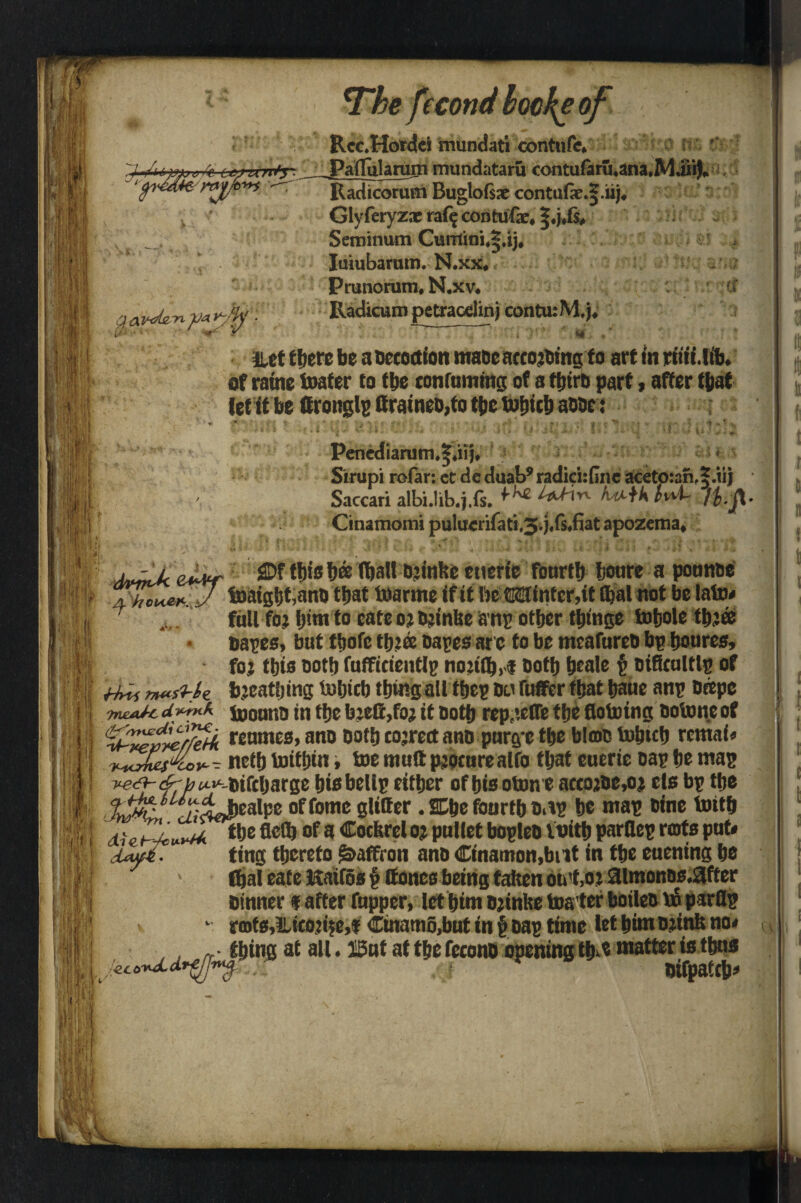 The second booke of
Rec. Hordei mundati contuse.
Passularum mundatarũ contusarũ. ana. M.iiij.
Radicorum Buglossæ contusæ.℥.iij.
Glyseryzæ rasę contusæ. ℥.j.ſs.
Seminum Cumini.℥.ij.
Iuiubarum. N.xx.
Prunorum. N.xv.
Radicum petracelinj contu: M.j.
garden parsly.
Let there be a decoction made according to art in riiii.lib.
of raine water to the consuming of a third part, after that
let it be strongly strained, to the which adde:
Penediarum.℥.iij.
Sirupi rosar: et de duabꝰ radici: sine aceto: an.℥.iij
Saccari albi.lib.j.ſs. the latin hath but lb.ſs.
Cinamomi puluerisati.ʒ.j.ſs. fiat apozema.
drink euery
4 houer.
Of this hée shall drinke euerie fourth houre a pounde
waight, and that warme if it be Winter, it shal not be law-
full for him to eate or drinke any other thinge whole thrée
dayes, but those thrée dayes are to be measured by houres,
for this doth sufficiently norish, & doth heale þͤ difficultly of
breathing which thing all they do suffer that haue any déepe
wound in the brest, for it doth represse the flowing downe of
reumes, and doth correct and purge the blood which remai-
neth within, we must procure also that euerie day he may
discharge his belly either of his owne accorde, or els by the
healpe of some glister. The fourth day he may dine with
the flesh of a Cockrel or pullet boyled with parsley roots put-
ting thereto Saffron and Cinamon, but in the euening he
shal eate Raisõs þͤ stones being taken out, or Almonds. After
dinner & after supper, let him drinke water boiled wͭ parsly
roots, Licorize, & Cinamõ, but in þͤ day time let him drink no-
thing at all. But at the second opening the matter is thus
dispatch-
this must be
meate drink
& medicine.
it represseth
reumes & cor-
rect & pur-
diet fourth
days.
second dressing